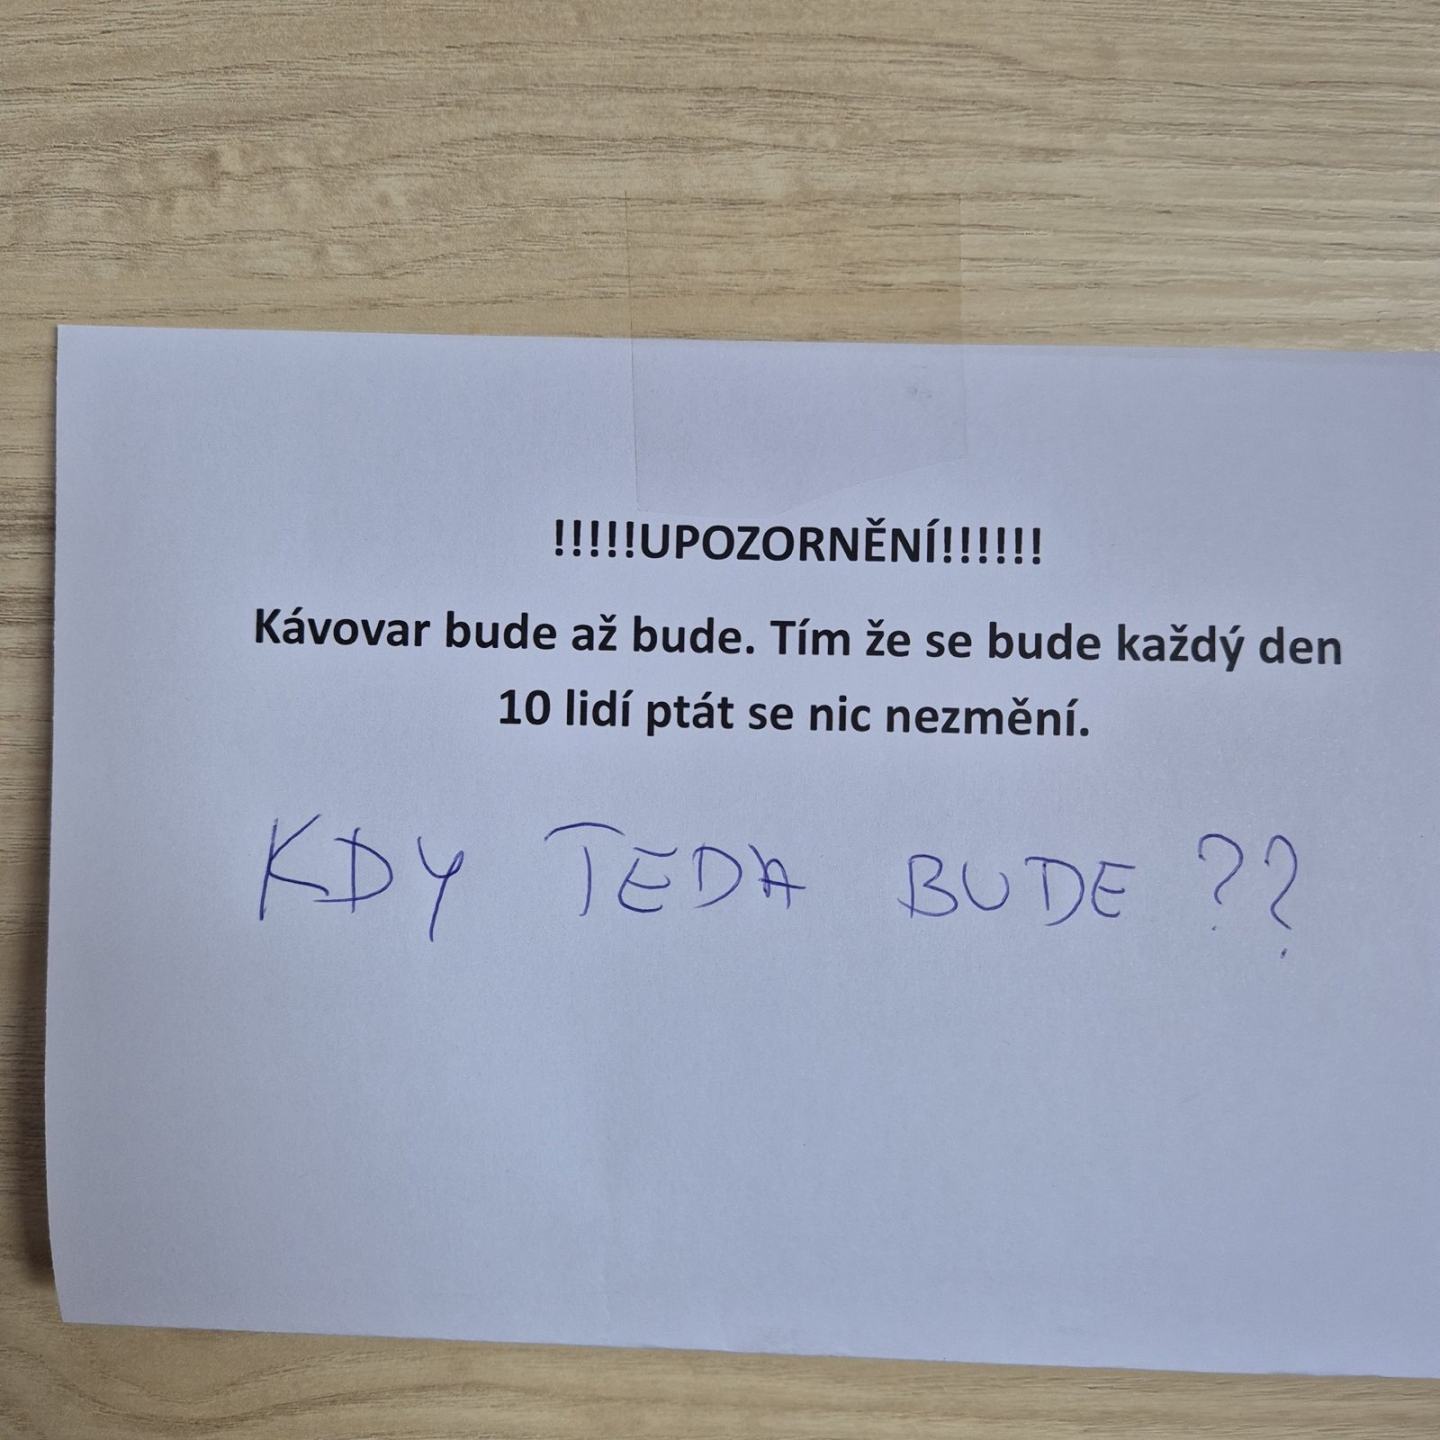 !!!!!UPOZORNĚNÍ!!!!!!
Kávovar bude až bude. Tím že se bude každý den
10 lidí ptát se nic nezmění.
KDY TEDA BUDE ??